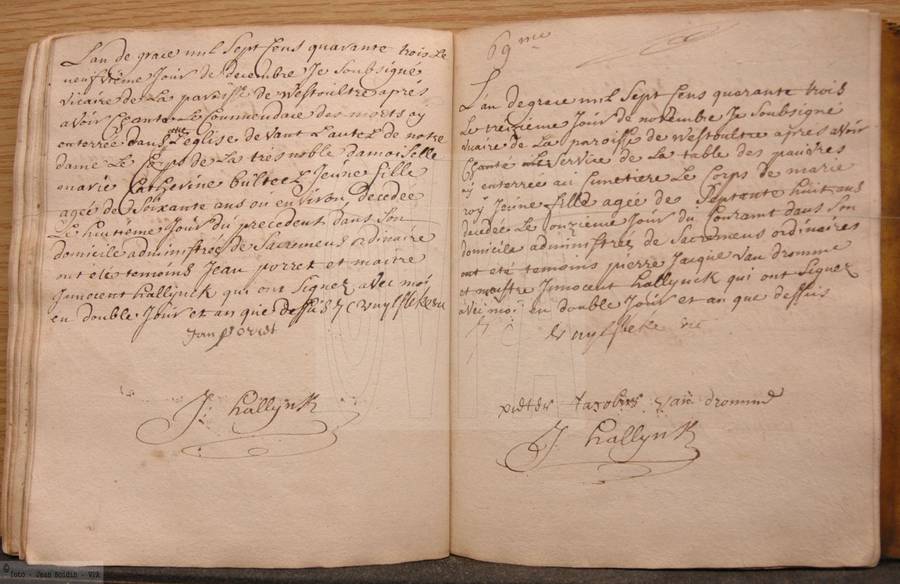 L'an de grace mil Sept Sens quarante trois Le
neufvième Jour de decembre Je Soubsigné
vicaire de La paroisse de Westoultre apres
avoir Chanté Le Commendace des morts ay
enterrée dans L'eglise devant L'autel de notre
dame Le Corps de La très noble damoiselle
marie Catherine bulteel Jeune fille
agée de Soixante ans ou environ decedée
Le huitième Jour du precedent dans Son
domicile administrée de Sacremens ordinaire
ont etés temoins Jean porret et maitre
Innocent hallijnck qui ont Signez avec moi
en double Jour et an que dessus
Jan porret
J: hallynk
69me
L'an de grace mil Sept Sens quarante trois
Le treizième Jour de novembre Je Soubsigné
vicaire de La paroisse de Westoultre apres avoir
Chanté Le Service de La table des pauvres
ay enterrée au Cimetiere Le Corps de marie
roy Jeune fille agee de Septente huit ans
decedée Le onzième Jour du Courant dans Son
domicile administrée de Sacremens ordinaires
ont eté temoins pierre Jacque van dromme
et maistre Innocent hallijnck qui ont Signez
avec moi en double Jour et an que dessus
pieter Jacobus van dromme
J. hallynk
© foto - Jean Goldin - VVF